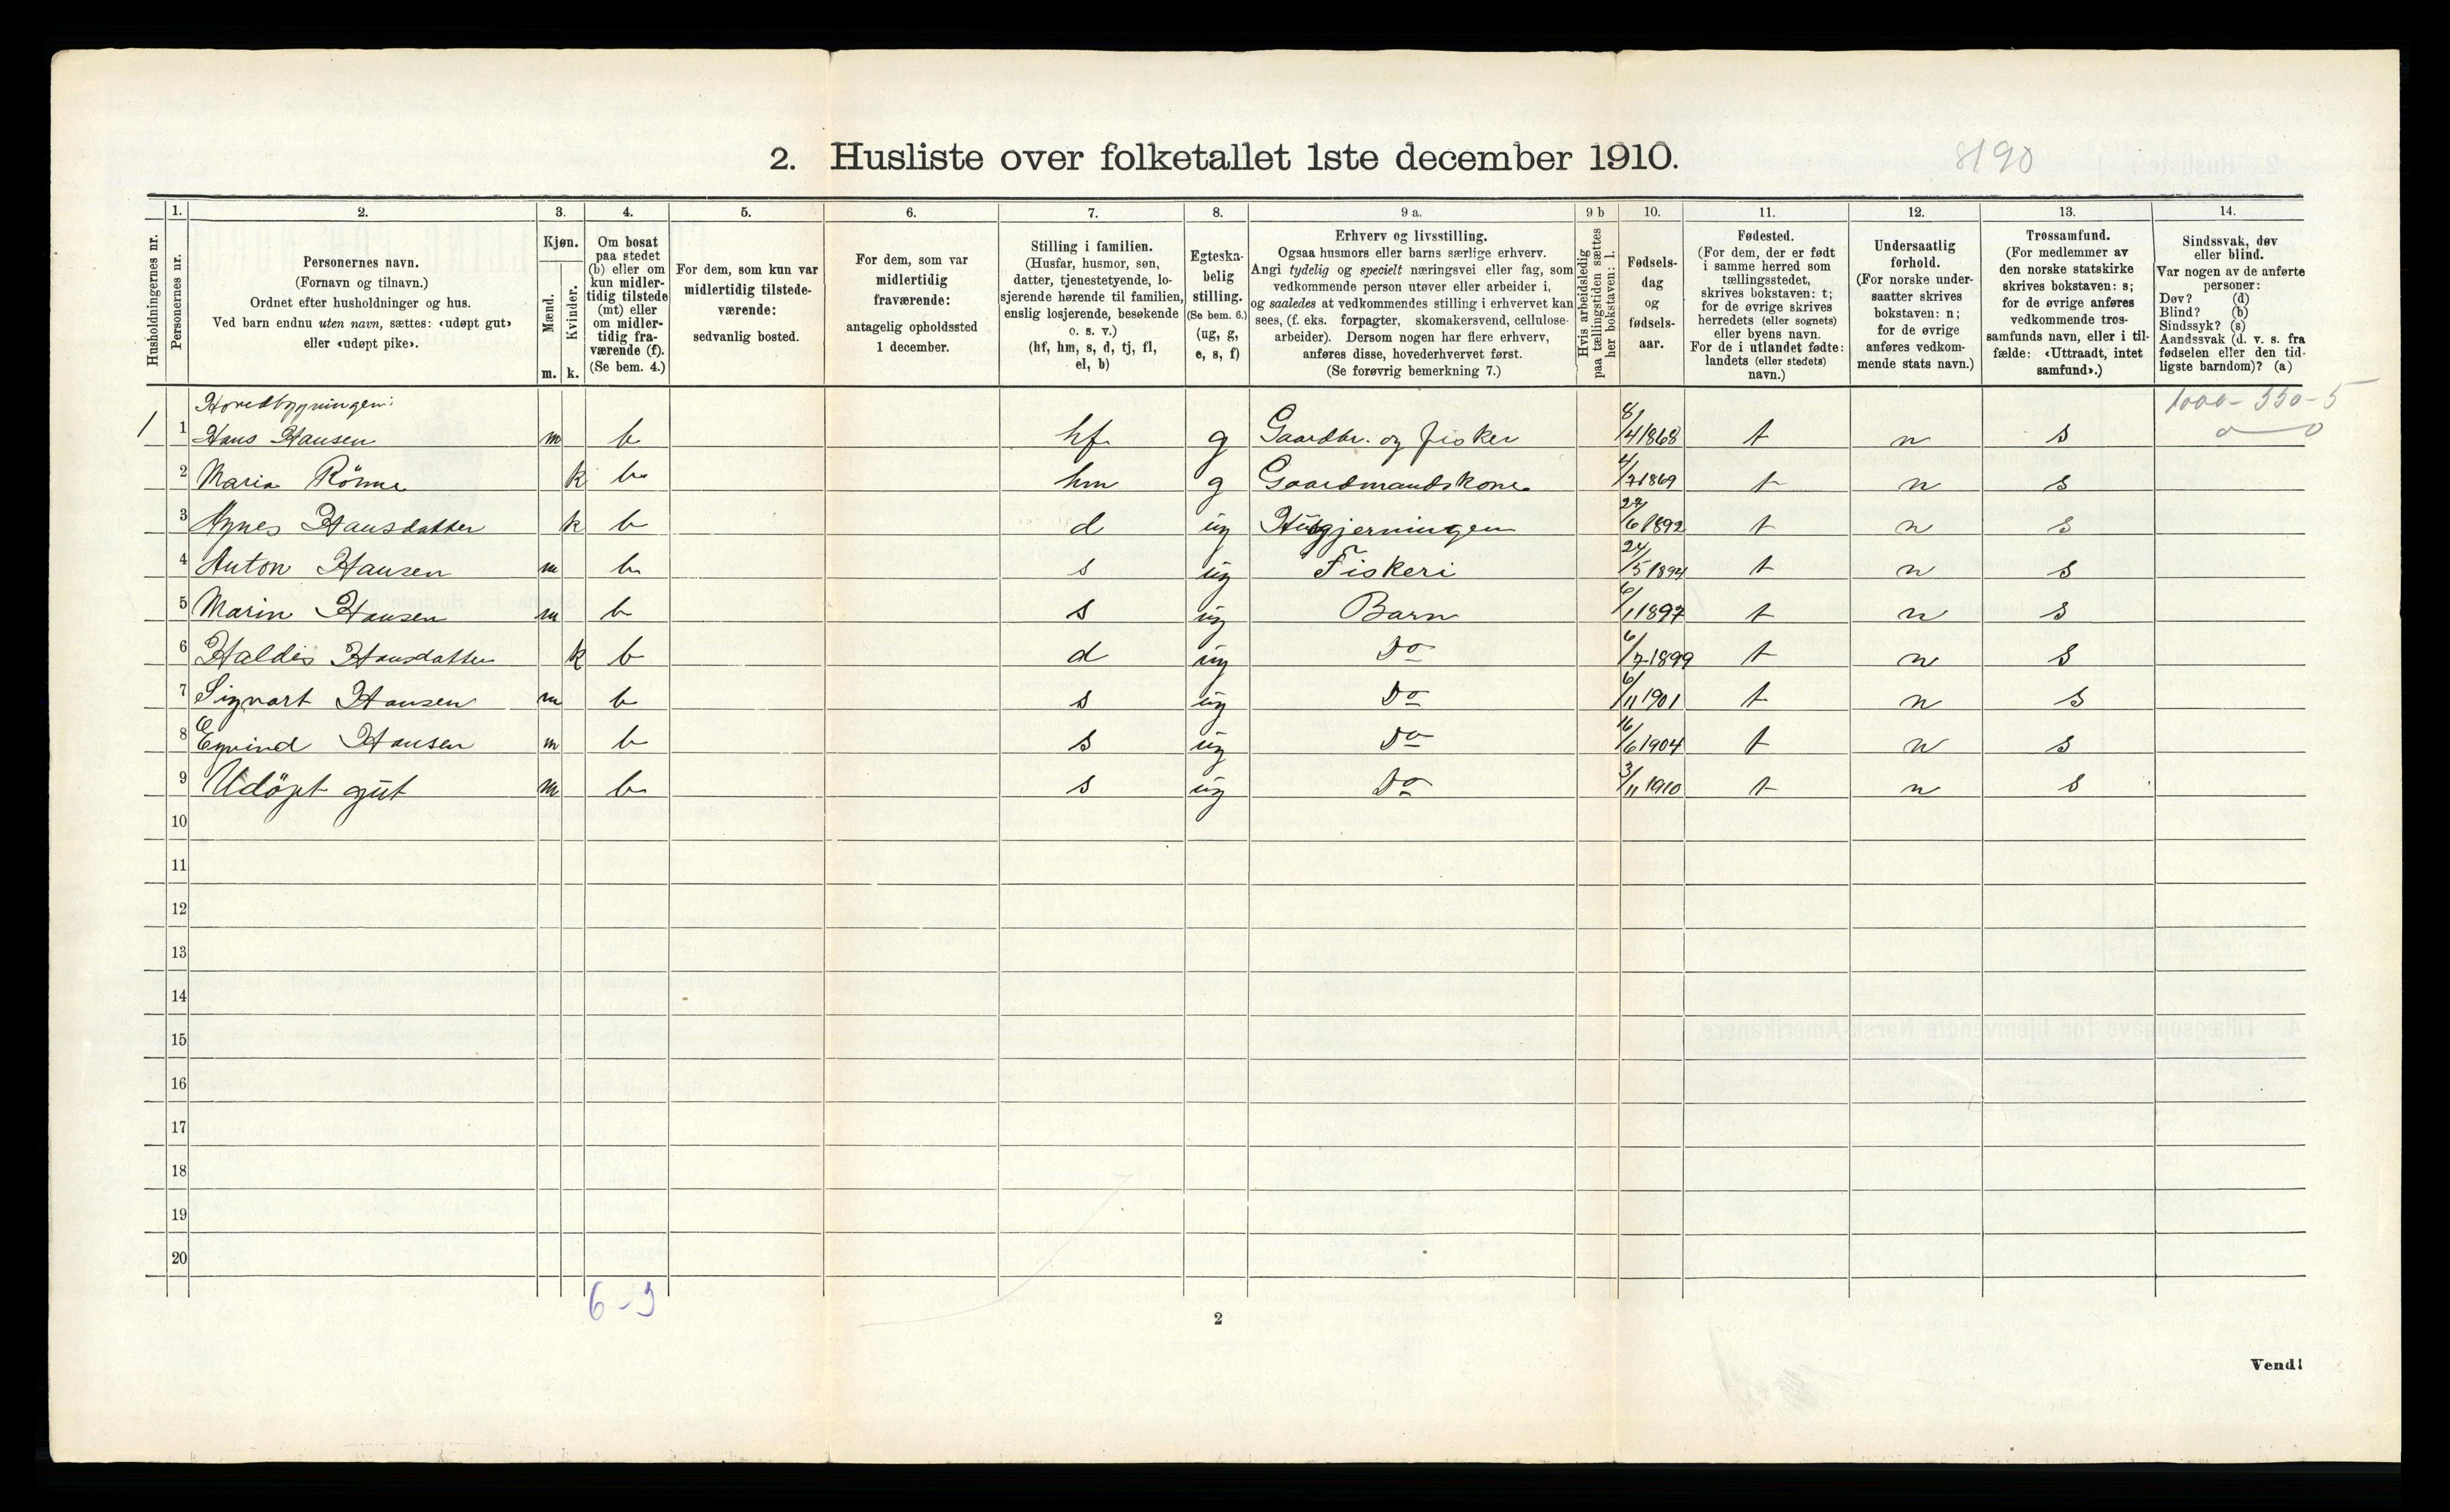 2. Husliste over folketallet 1ste december 1910.
8190
Husholdningernes nr.
1.
Personernes nr.
2.
Personernes navn.
(Fornavn og tilnavn.)
Ordnet efter husholdninger og hus.
Ved barn endnu uten navn, sættes: «udøpt gut»
eller «udøpt pike».
3.
Kjøn.
Mænd.
Kvinder.
m. k.
4.
Om bosat
paa stedet
(b) eller om
kun midler-
tidig tilstede
(mt) eller
om midler-
tidig fra-
værende (f).
(Se bem. 4.)
5.
For dem, som kun var
midlertidig tilstede-
værende:
sedvanlig bosted.
6.
For dem, som var
midlertidig
fraværende:
antagelig opholdssted
1 december.
7.
Stilling i familien.
(Husfar, husmor, søn,
datter, tjenestetyende, lo-
sjerende hørende til familien,
enslig losjerende, besøkende
o. s. v.)
(hf, hm, s, d, tj, fl,
el, b)
8.
Egteska-
belig
stilling.
(Se bem. 6.)
(ug, g,
e, s, f)
9 a.
Erhverv og livsstilling.
Ogsaa husmors eller barns særlige erhverv.
Angi tydelig og specielt næringsvei eller fag, som
vedkommende person utøver eller arbeider i,
og saaledes at vedkommendes stilling i erhvervet kan
sees, (f. eks. forpagter, skomakersvend, cellulose-
arbeider). Dersom nogen har flere erhverv,
anføres disse, hovederhvervet først.
(Se forøvrig bemerkning 7.)
9 b
Hvis arbeidsledig
paa tællingstiden sættes
her bokstaven: l.
10.
Fødsels-
dag
og
fødsels-
aar.
11.
Fødested.
(For dem, der er født
i samme herred som
tællingsstedet,
skrives bokstaven: t;
for de øvrige skrives
herredets (eller sognets)
eller byens navn.
For de i utlandet fødte:
landets (eller stedets)
navn.)
12.
Undersaatlig
forhold.
(For norske under-
saatter skrives
bokstaven: n;
for de øvrige
anføres vedkom-
mende stats navn.)
13.
Trossamfund.
(For medlemmer av
den norske statskirke
skrives bokstaven: s;
for de øvrige anføres
vedkommende tros-
samfunds navn, eller i til-
fælde: «Uttraadt, intet
samfund».)
14.
Sindssvak, døv
eller blind.
Var nogen av de anførte
personer:
Døv? (d)
Blind? (b)
Sindssyk? (s)
Aandssvak (d. v. s. fra
fødselen eller den tid-
ligste barndom)? (a)
Hovedbygningen: 1000-350-5
1 1 Hans Hansen m b hf g Gaardbr. og fisker 8/4 1868 t n s 0 0
2 Maria Rönne k b hm g Gaardmandskone 4/7 1869 t n s
3 Agnes Hansdatter k b d ug Husgjerningen 27/6 1892 t n s
4 Anton Hansen m b s ug Fiskeri 24/5 1894 t n s
5 Marin Hansen m b s ug Barn 6/1 1897 t n s
6 Haldis Hansdatter k b d ug Do 6/7 1899 t n s
7 Sigvart Hansen m b s ug Do 6/11 1901 t n s
8 Eyvind Hansen m b s ug Do 16/6 1904 t n s
9 Udöpt gut m b s ug Do 3/11 1910 t n s
10
11
12
13
14
15
16
17
18
19
20
6-3
2
Vend!